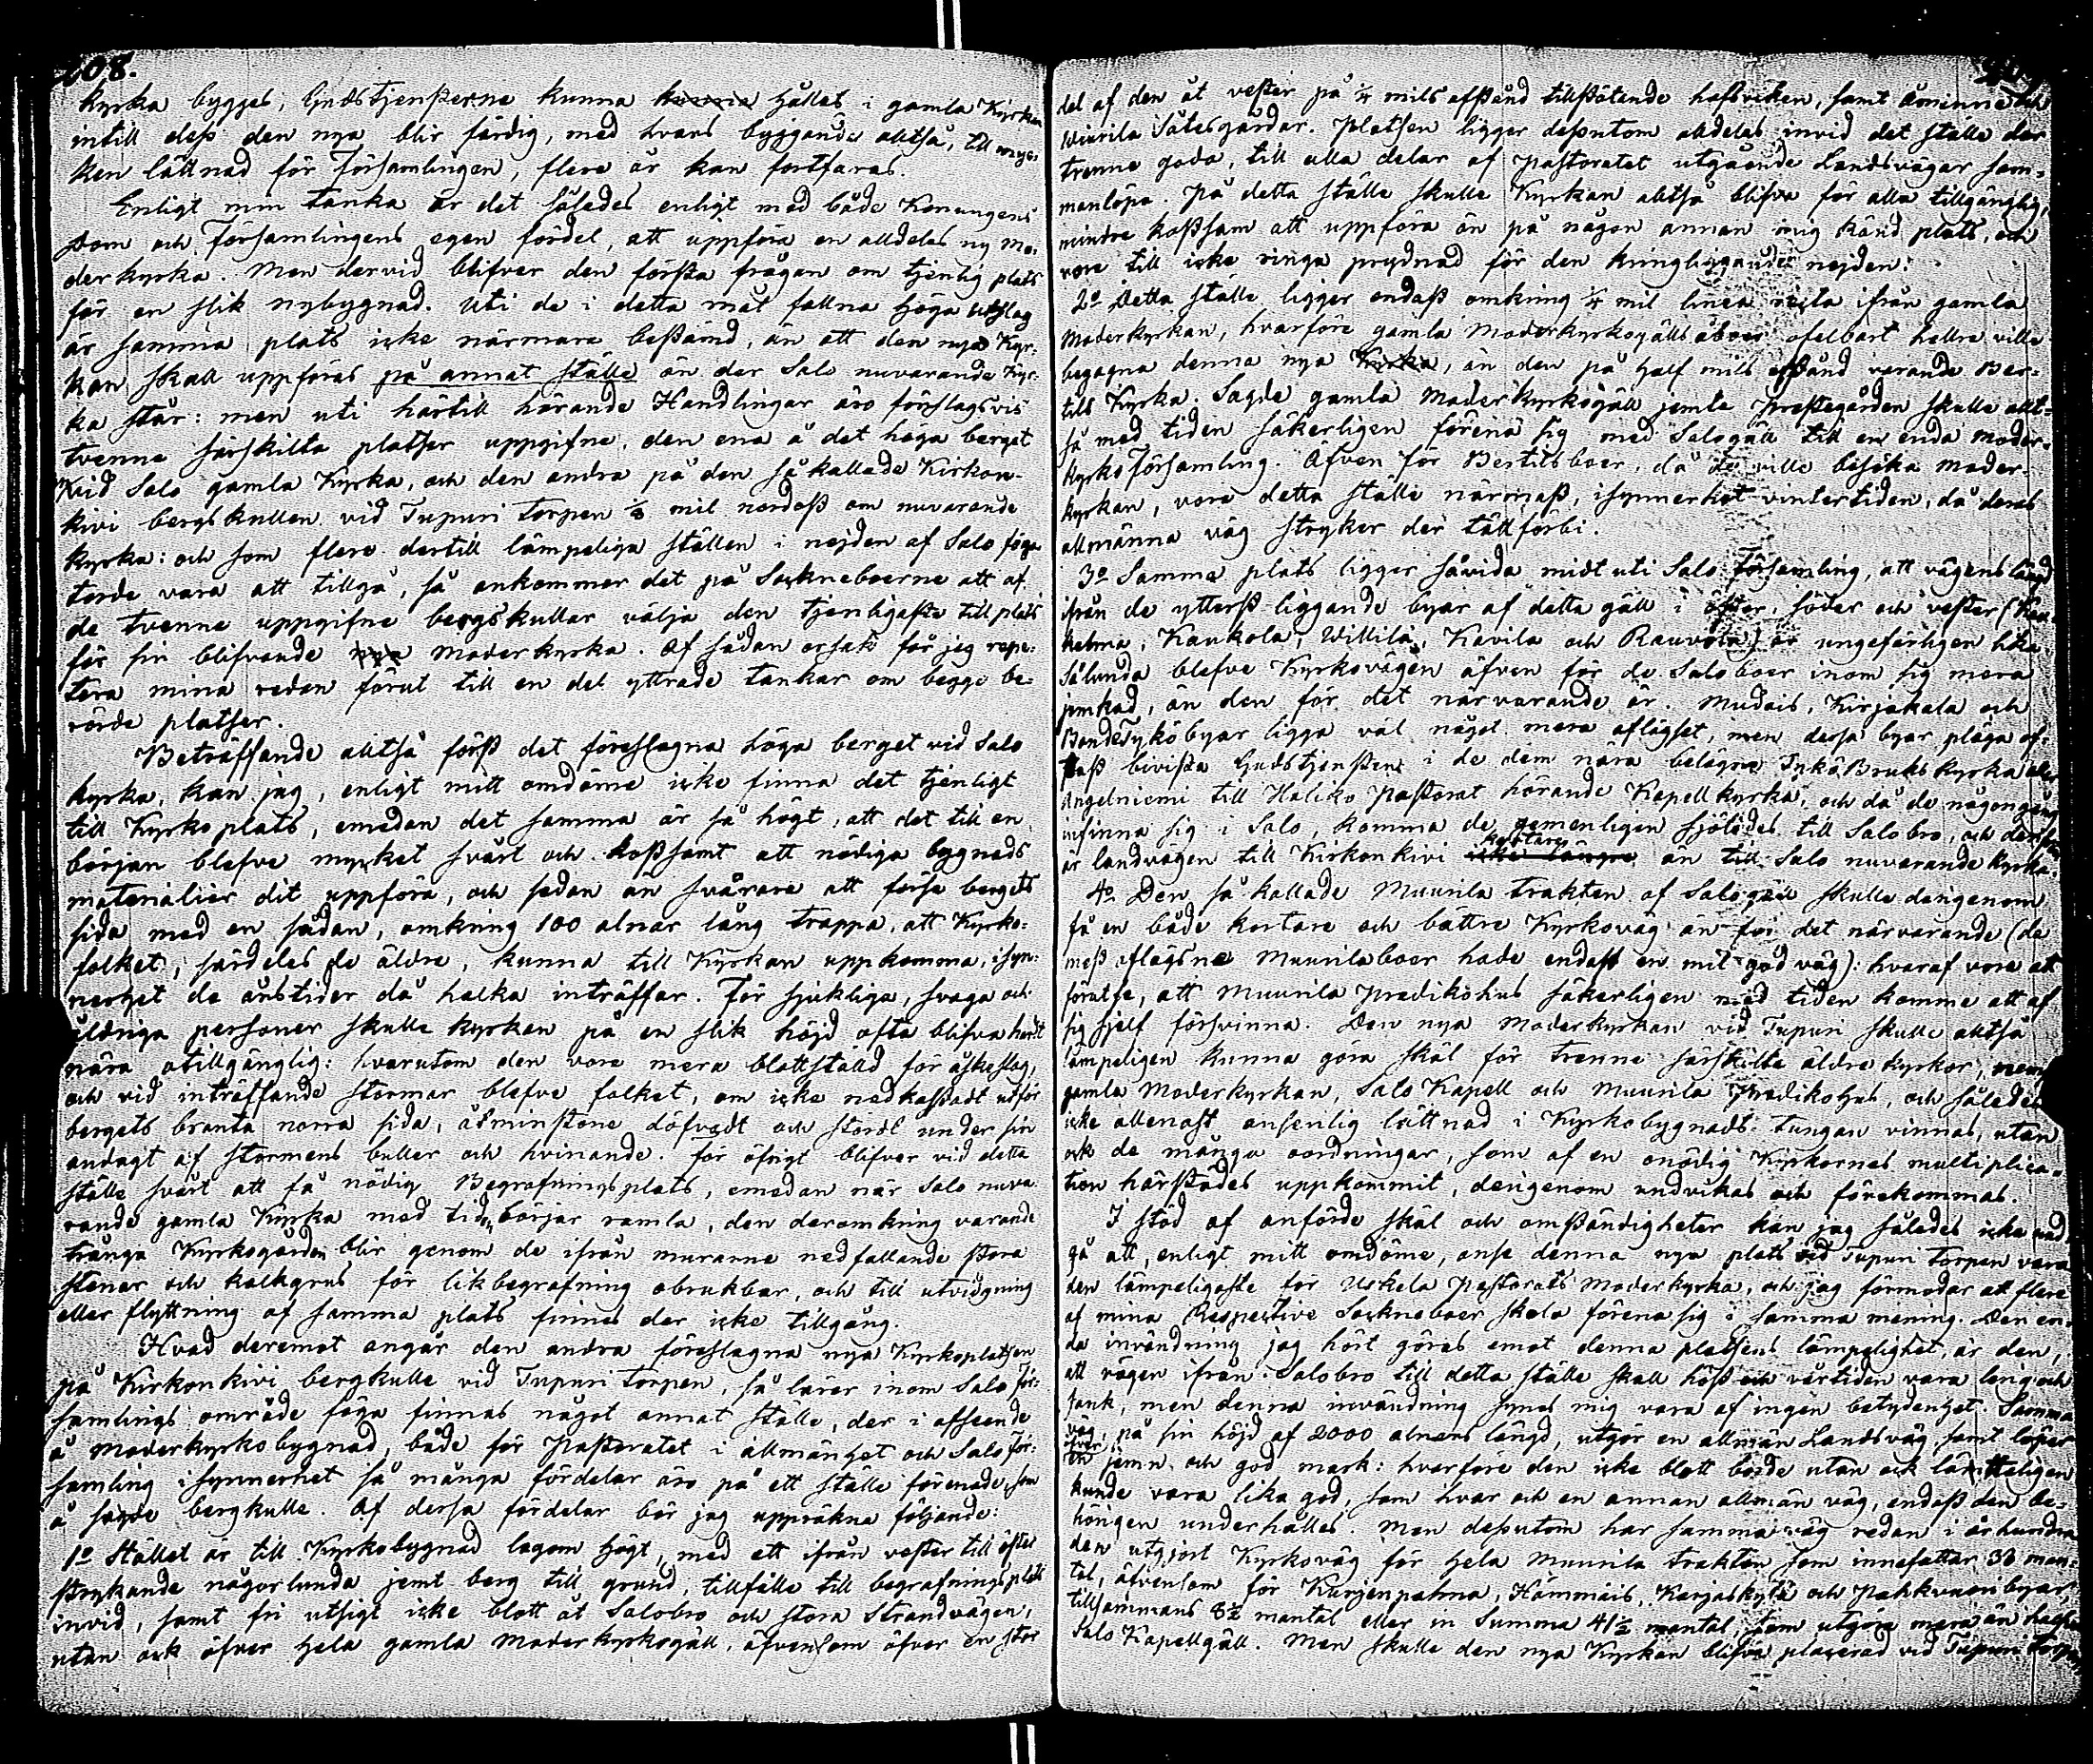 208.
Kyrka bygges; Gudstjensterne kunna kunna hållas i gamla Kyrkan
intill dess den nya blir färdig, med hvars byggande alltså, till myc-
ken lättnad för Församlingen, flere år kan fortfaras.
Enligt min tanka är det således enligt med både Konungens
Dom och Församlingens egen fördel, att uppföra en alldeles ny Mo-
derkyrka. Men dervid blifver den första frågan om tjenlig plats
för en slik nybygnad. Uti de i detta mål fallna höga Utslag
är samma plats icke närmare bestämd, än att den nya Kyr-
kan skall uppföras på annat ställe än der Salo nuvarande Kyr-
ka står: men uti härtill hörande Handlingar äro förslagsvis
tvenne särskilta platser uppgifne, den ena å det höga berget
vid Salo gamla Kyrka, och den andra på den så kallade Kirkon-
kivi bergskullen vid Tupuri Torpen 1/8 mil nordost om nuvarande
Kyrka: och som flere dertill lämpeliga ställen i nejden af Salo föga
torde vara att tillgå, så ankommer det på Sockneboerne att af
de tvenne uppgifne bergskullar välja den tjenligaste till plats
för sin blifvande nya Moderkyrka. Af sådan orsak får jag repe-
tera mina redan förut till en del yttrade tankar om begge be-
rörde platser.
Beträffande alltså först det föreslagna höga berget vid Salo
Kyrka, kan jag, enligt mitt omdöme icke finna det tjenligt
till Kyrkoplats, emedan det samma är så högt, att det till en
början blefve mycket svårt och kostsamt att nödiga bygnads
materialier dit uppföra, och sedan än svårare att förse bergets
sida med en sådan, omkring 100 alnar lång trappa, att Kyrko-
folket, särdeles de äldre, kunna till Kyrkan uppkomma, isyn-
nerhet de årstider då halka inträffar. För sjukliga, svaga och
åldriga personer skulle Kyrkan på en slik höjd ofta blifva hardt
nära otillgänglig: hvarutom den vore mera blottställd för åskeslag,
och vid inträffande stormar blefve folket, om icke nedkastadt utför
bergets branta norra sida, åtminstone döfvadt och stördt under sin
andagt af stormens buller och hvinande. För öfrigt blifver vid detta
ställe svårt att få nödig Begrafningsplats, emedan när Salo nuva-
rande gamla Kyrka med tiden börjar ramla, den deromkring varande
trånga Kyrkogården blir genom de ifrån murarne nedfallande stora
stenar och kalkgrus för likbegrafning obrukbar, och till utvidgning
eller flyttning af samma plats finnes der icke tillgång.
Hvad deremot angår den andra föreslagna nya Kyrkoplatsen
på Kirkonkivi bergkulle vid Tupuri Torpen, så lärer inom Salo För-
samlings område föga finnas något annat ställe, der i afseende
å Moderkyrkobygnad, både för Pastoratet i allmänhet och Salo För-
samling isynnerhet så många fördelar äro på ett ställe förenade, som
å sagde bergkulle. Af dessa fördelar bör jag uppräkna följande:
1o Stället är till Kyrkobygnad lagom högt, med ett ifrån vester till öster
strykande någorlunda jemt berg till grund, tillfälle till begrafningsplats
invid, samt fri utsigt icke blott åt Salobro och stora Strandvägen,
utan ock öfver hela gamla Moderkyrkogäll, äfvensom öfver en stor
del af den åt vester på 1/4 mils afstånd tillstötande hafsviken, samt Åminne och
Wiurila Sätesgårdar. Platsen ligger dessutom alldeles invid det ställe der
trenne goda, till alla delar af Pastoratet utgående Landsvägar sam-
manlöpa. På detta ställe skulle Kyrkan alltså blifva för alla tillgänglig,
mindre kostsam att uppföra än på någon annan mig känd plats, och
vore till icke ringa prydnad för den kringliggande nejden.
2o Detta ställe ligger endast omkring 1/4 mil linea recta ifrån gamla
Moderkyrkan, hvarföre gamla Moderkyrkogälls åboer ofelbart hellre ville
begagna denna nya Kyrka, än den på half mils afstånd varande Ber-
tils Kyrka. Sagde gamla Moderkyrkogäll jemte Prestegården skulle allt-
så med tiden säkerligen förena sig med Salogäll till en enda Moder-
kyrkoförsamling. Äfven för Bertilsboer, då de ville besöka Moder-
kyrkan, vore detta ställe närmast, isynnerhet vintertiden, då deras
allmänna väg stryker der tätt förbi.
3o Samma plats ligger såvida midt uti Salo Församling, att vägens längd
ifrån de ytterst liggande byar af detta gäll i öster, söder och vester (
Kaukola, Willilä, Kavila och Rauvola) är ungefärligen lika
Sålunda blefve Kyrkovägen äfven för de Saloboer inom sig mera
jemkad, än den för det närvarande är. Mudais, Kirjakala och
BondeTykö byar ligga väl något mera aflägset, men dessa byar pläga of-
tast bivista Gudstjensten i de dem nära belägne Tykö Bruks Kyrka eller
Angelniemi till Haliko Pastorat hörande Kapellkyrka, och då de någongång
infinna sig i Salo, komma de gemenligen sjöledes till Salobro, och derifrån
kortare
är landvägen till Kirkonkivi icke längre än till Salo nuvarande Kyrka.
4o Den så kallade Muurila trakten af Salogäll skulle derigenom
få en både kortare och bättre Kyrkoväg än för det närvarande (de
mest aflägsne Muurilaboer hade endast en mil god väg): hvaraf vore att
förutse, att Muurila Predikohus säkerligen med tiden komme att af
sig sjelf försvinna. Den nya Moderkyrkan vid Tupuri skulle alltså
lämpeligen kunna göra skäl för trenne särskilte äldre Kyrkor, neml.
gamla Moderkyrkan, Salo Kapell och Muurila Predikohus, och således
icke allenast ansenlig lättnad i Kyrkobygnads-Tungan vinnas, utan
ock de många oordningar, som af en onödig Kyrkornes multiplica-
tion härstädes uppkommit, derigenom undvikas och förekommas.
I stöd af anförde skäl och omständigheter kan jag således icke und-
gå att, enligt mitt omdöme, anse denna nya plats vid Tupuri Torpen vara
den lämpeligaste för Uskela Pastorats Moderkyrka, och jag förmodar att flere
af mina Respective Sockneboer skola förena sig i samma mening. Den en-
da invändning jag hört göras emot denna platsens lämpelighet, är den,
att vägen ifrån Salobro till detta ställe skall höst och vårtiden vara lerig och
sank, men denna invändning synes mig vara af ingen betydenhet. Samma
väg, på sin höjd af 2000 alnars längd, utgör en allmän Landsväg samt löper
öfver
en jemn och god mark: hvarföre den icke blott borde utan ock lätteligen
kunde vara lika god, som hvar och en annan allmän väg, endast den be-
hörigen underhålles. Men dessutom har samma väg redan i århundra
den utgjort Kyrkoväg för hela Muurila trakten som innefattar 33 man-
tal, äfvensom för Kurjenpahna, Hämmäis, Karjaskylä och Pahkvuori byar,
tillsammans 8 1/2 mantal eller in Summa 41 1/2 mantal, som utgöra mera än halfva
Salo Kapellgäll. Men skulle den nya Kyrkan blifva placerad vid Tupuri Torpen